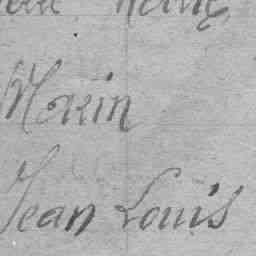 Morin
Jean Louis